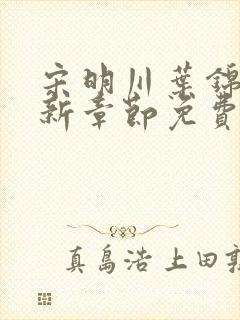 宋明川葉錦
新章節免費
真島浩 上田敦